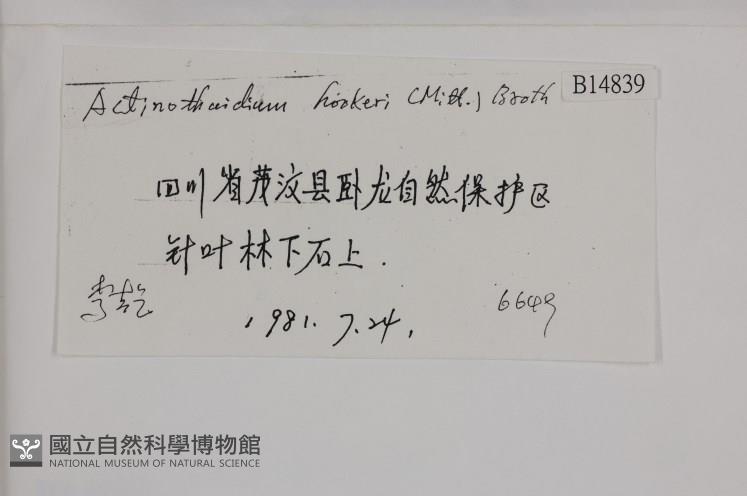 Actinothuidium hookeri (Mitt.) Broth
B14839
四川省茂汶县卧龙自然保护区
针叶林下石上.
李乾
6649
1981.7.24,
國立自然科學博物館
NATIONAL MUSEUM OF NATURAL SCIENCE